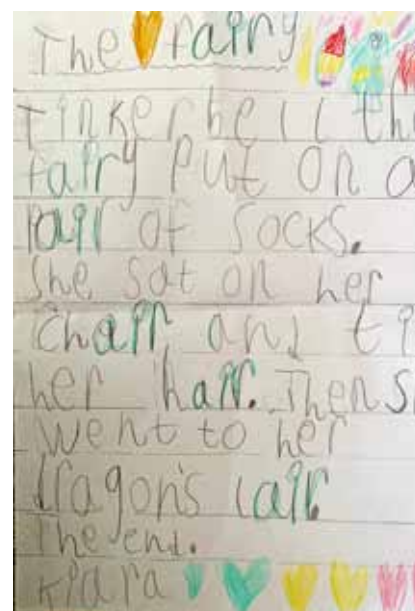 The fairy
Tinkerbell th
fairy put on a
pair of socks.
She sat on her
chair and ti
her hair. Then s
went to her
dragon's lair.
The end.
Kiara